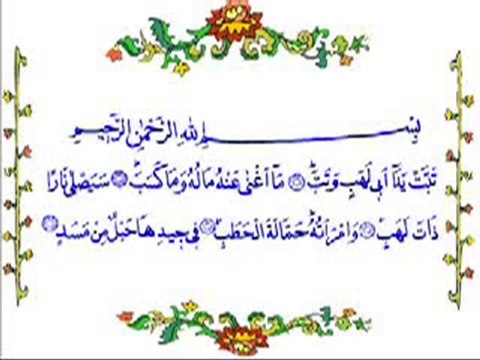 بِسْمِ اللهِ الرَّحْمٰنِ الرَّحِيمِ
تَبَّتْ يَدَٓا اَبِي لَهَبٍ وَتَبَّۜ ۝ مَٓا اَغْنٰى عَنْهُ مَالُهُ وَمَا كَسَبَۜ ۝ سَيَصْلٰى نَارًا
ذَاتَ لَهَبٍۚ ۝ وَامْرَاَتُهُۜ حَمَّالَةَ الْحَطَبِۚ ۝ فِي جِيدِهَا حَبْلٌ مِنْ مَسَدٍ ۝